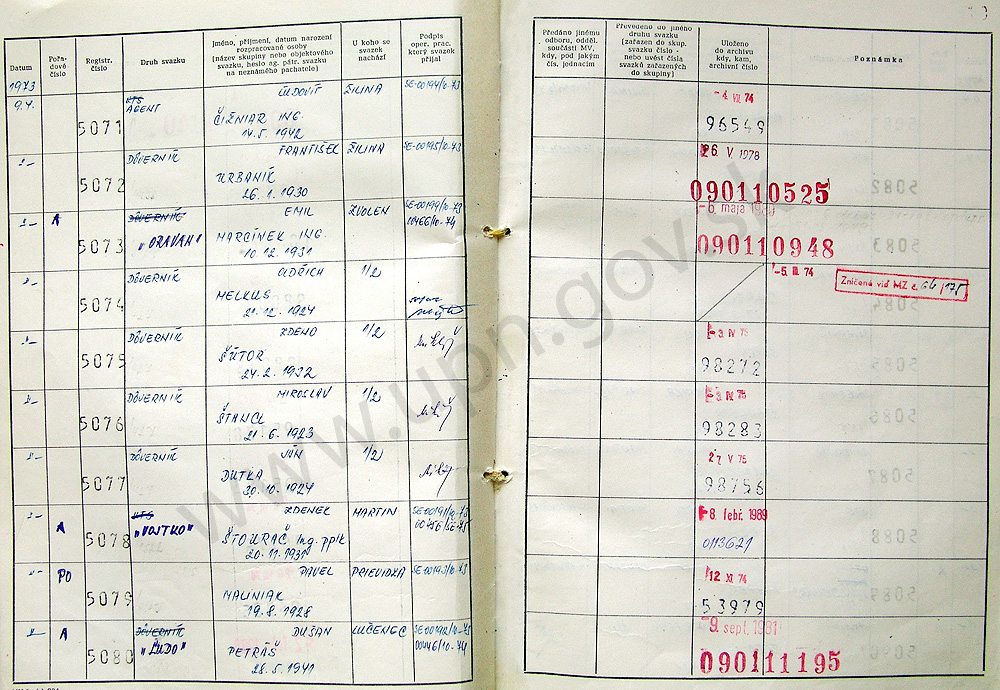 Datum
Pořa-
dové
číslo
Registr.
číslo
Druh svazku
Jméno, příjmení, datum narození
rozpracované osoby
(název skupiny nebo objektového
svazku, heslo ag. pátr. svazku
na neznámého pachatele)
U koho se
svazek
nachází
Podpis
oper. prac.
který svazek
přijal
Předáno jinému
odboru, odděl.
součásti MV,
kdy, pod jakým
čís. jednacím
Převedeno do jiného
druhu svazku
(zařazen do skup.
svazku číslo -
nebo uvést čísla
svazků zařazených
do skupiny)
Uloženo
do archivu
kdy, kam,
archivní číslo
Poznámka
1973
9.4. 5071 KTS AGENT ĽUDOVÍT ŽILINA SE-00194/10-73 -4 VII. 74
ČIŽNIAR ING. 96549
14.5. 1942
5072 DÔVERNÍK FRANTIŠEK ŽILINA SE-00195/10-73 26. V. 1978
URBANÍK 090110525
26.1. 1930
A 5073 DÔVERNÍK EMIL ZVOLEN -6. maja
"ORAVAN" MARCÍNEK ING. 090110948
10.12. 1931
5074 DÔVERNÍK OLDŘICH 1/2 -5. III. 74
MELKUS Zničené viď MZ č.
21.12. 1924
5075 DÔVERNÍK ZDENO 1/2 -3 IV. 75
ŠÚTOR 98272
24.2. 1932
5076 DÔVERNÍK MIROSLAV 1/2 -3 IV. 75
ŠTANCL 98283
21.6. 1923
5077 DÔVERNÍK JÁN 1/2 27 V 75
DUTKA 98756
30.10. 1924
A 5078 KTS ZDENEK MARTIN -8. febr. 1989
"VOJTKO" ŠTOURAČ Ing. pplk 0113621
20.11. 1931
PO 5079 PAVEL PRIEVIDZA SE-00193/10-73 12 XI. 74
MALINIAK 53979
19.8. 1928
A 5080 DÔVERNÍK DUŠAN LUČENEC -9. sept. 1981
"ĽUDO" PETRÁŠ 090111195
28.5. 1941
www.upn.gov.sk